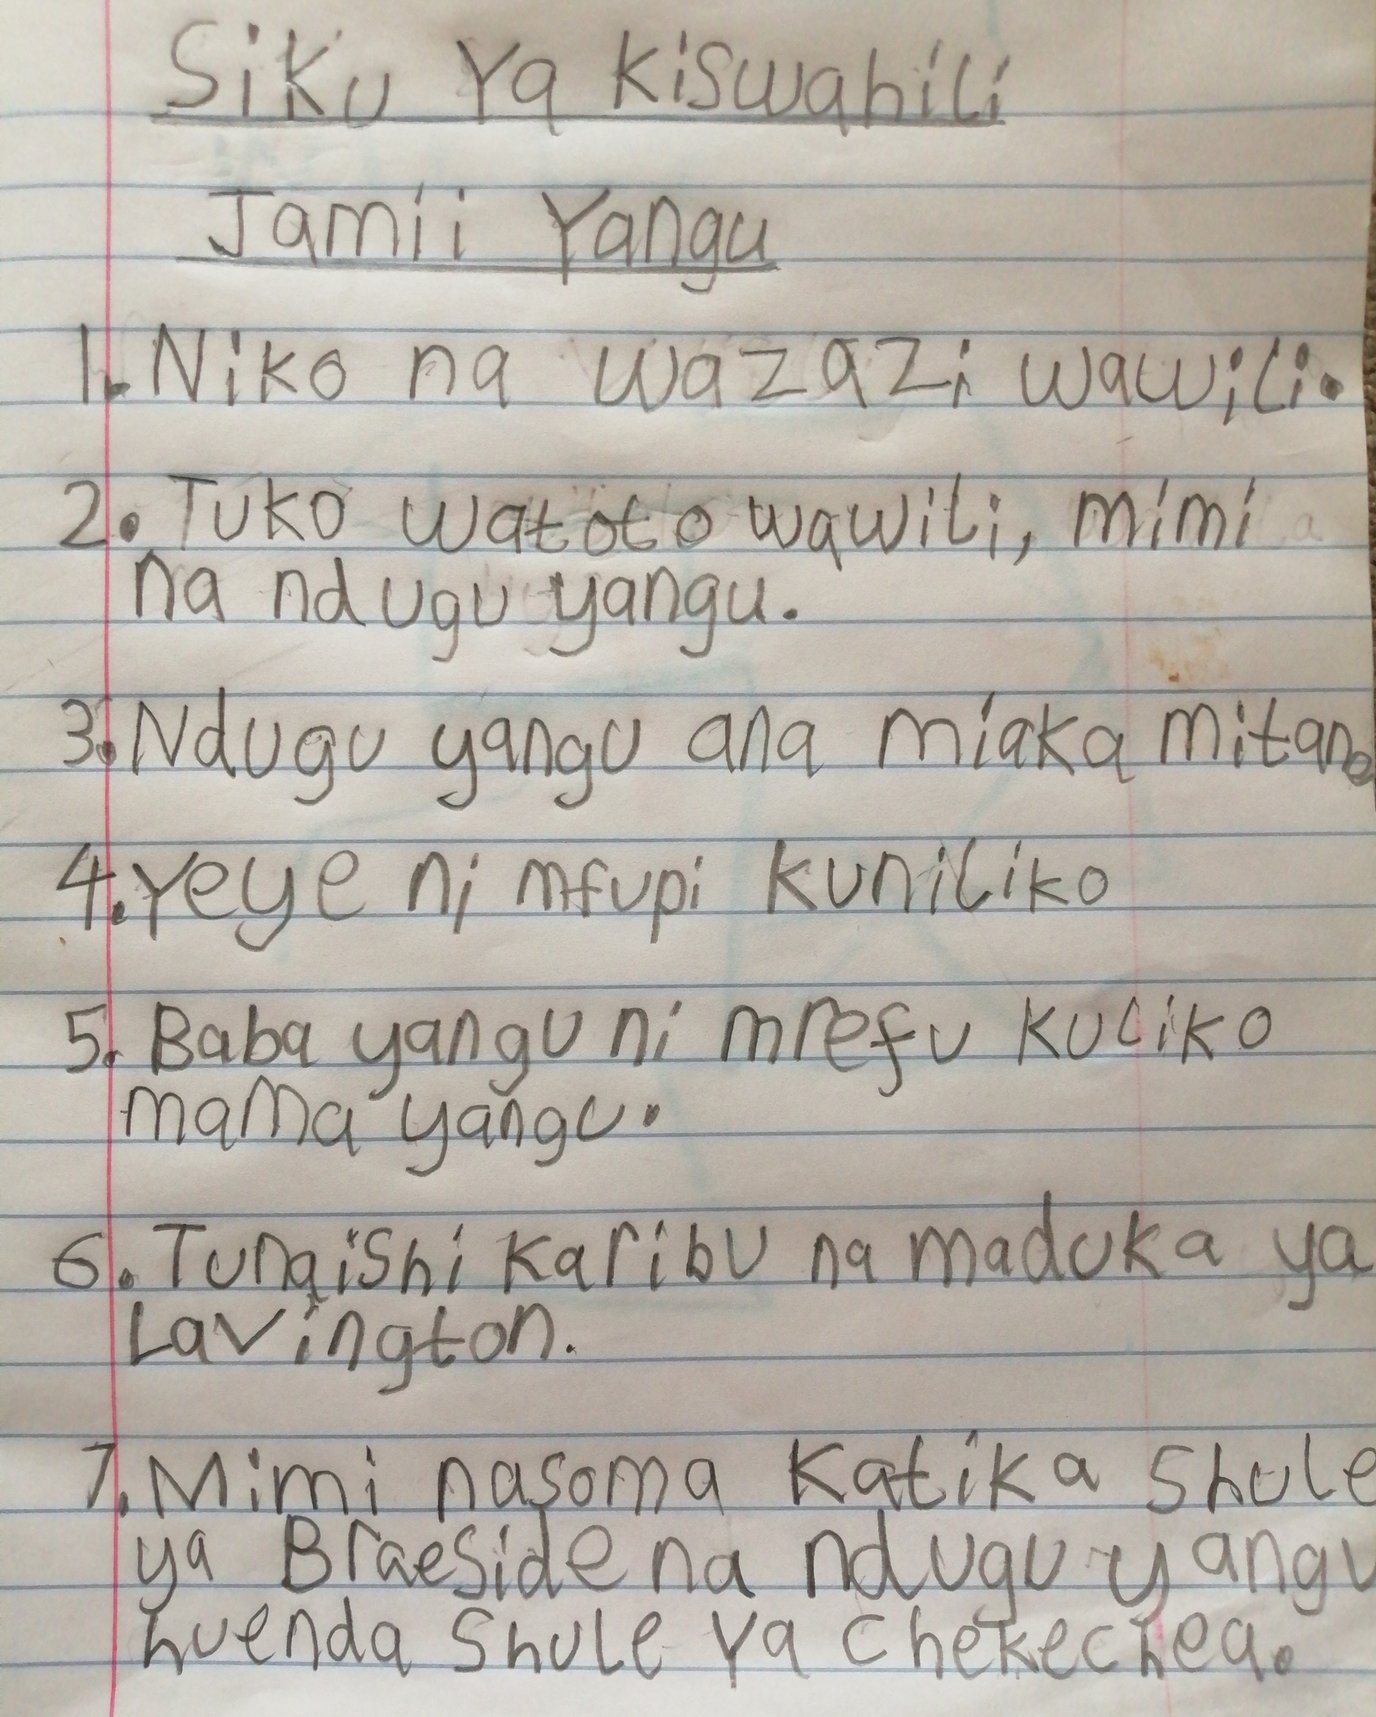 Siku Ya Kiswahili
Jamii Yangu
1. Niko na wazazi wawili.
2. Tuko watoto wawili, mimi
na ndugu yangu.
3. Ndugu yangu ana miaka mitano
4. Yeye ni mfupi kuniliko
5. Baba yangu ni mrefu kuliko
mama yangu.
6. Tunaishi karibu na maduka ya
Lavington.
7. Mimi nasoma katika shule
ya Braeside na ndugu yangu
huenda shule ya chekechea.